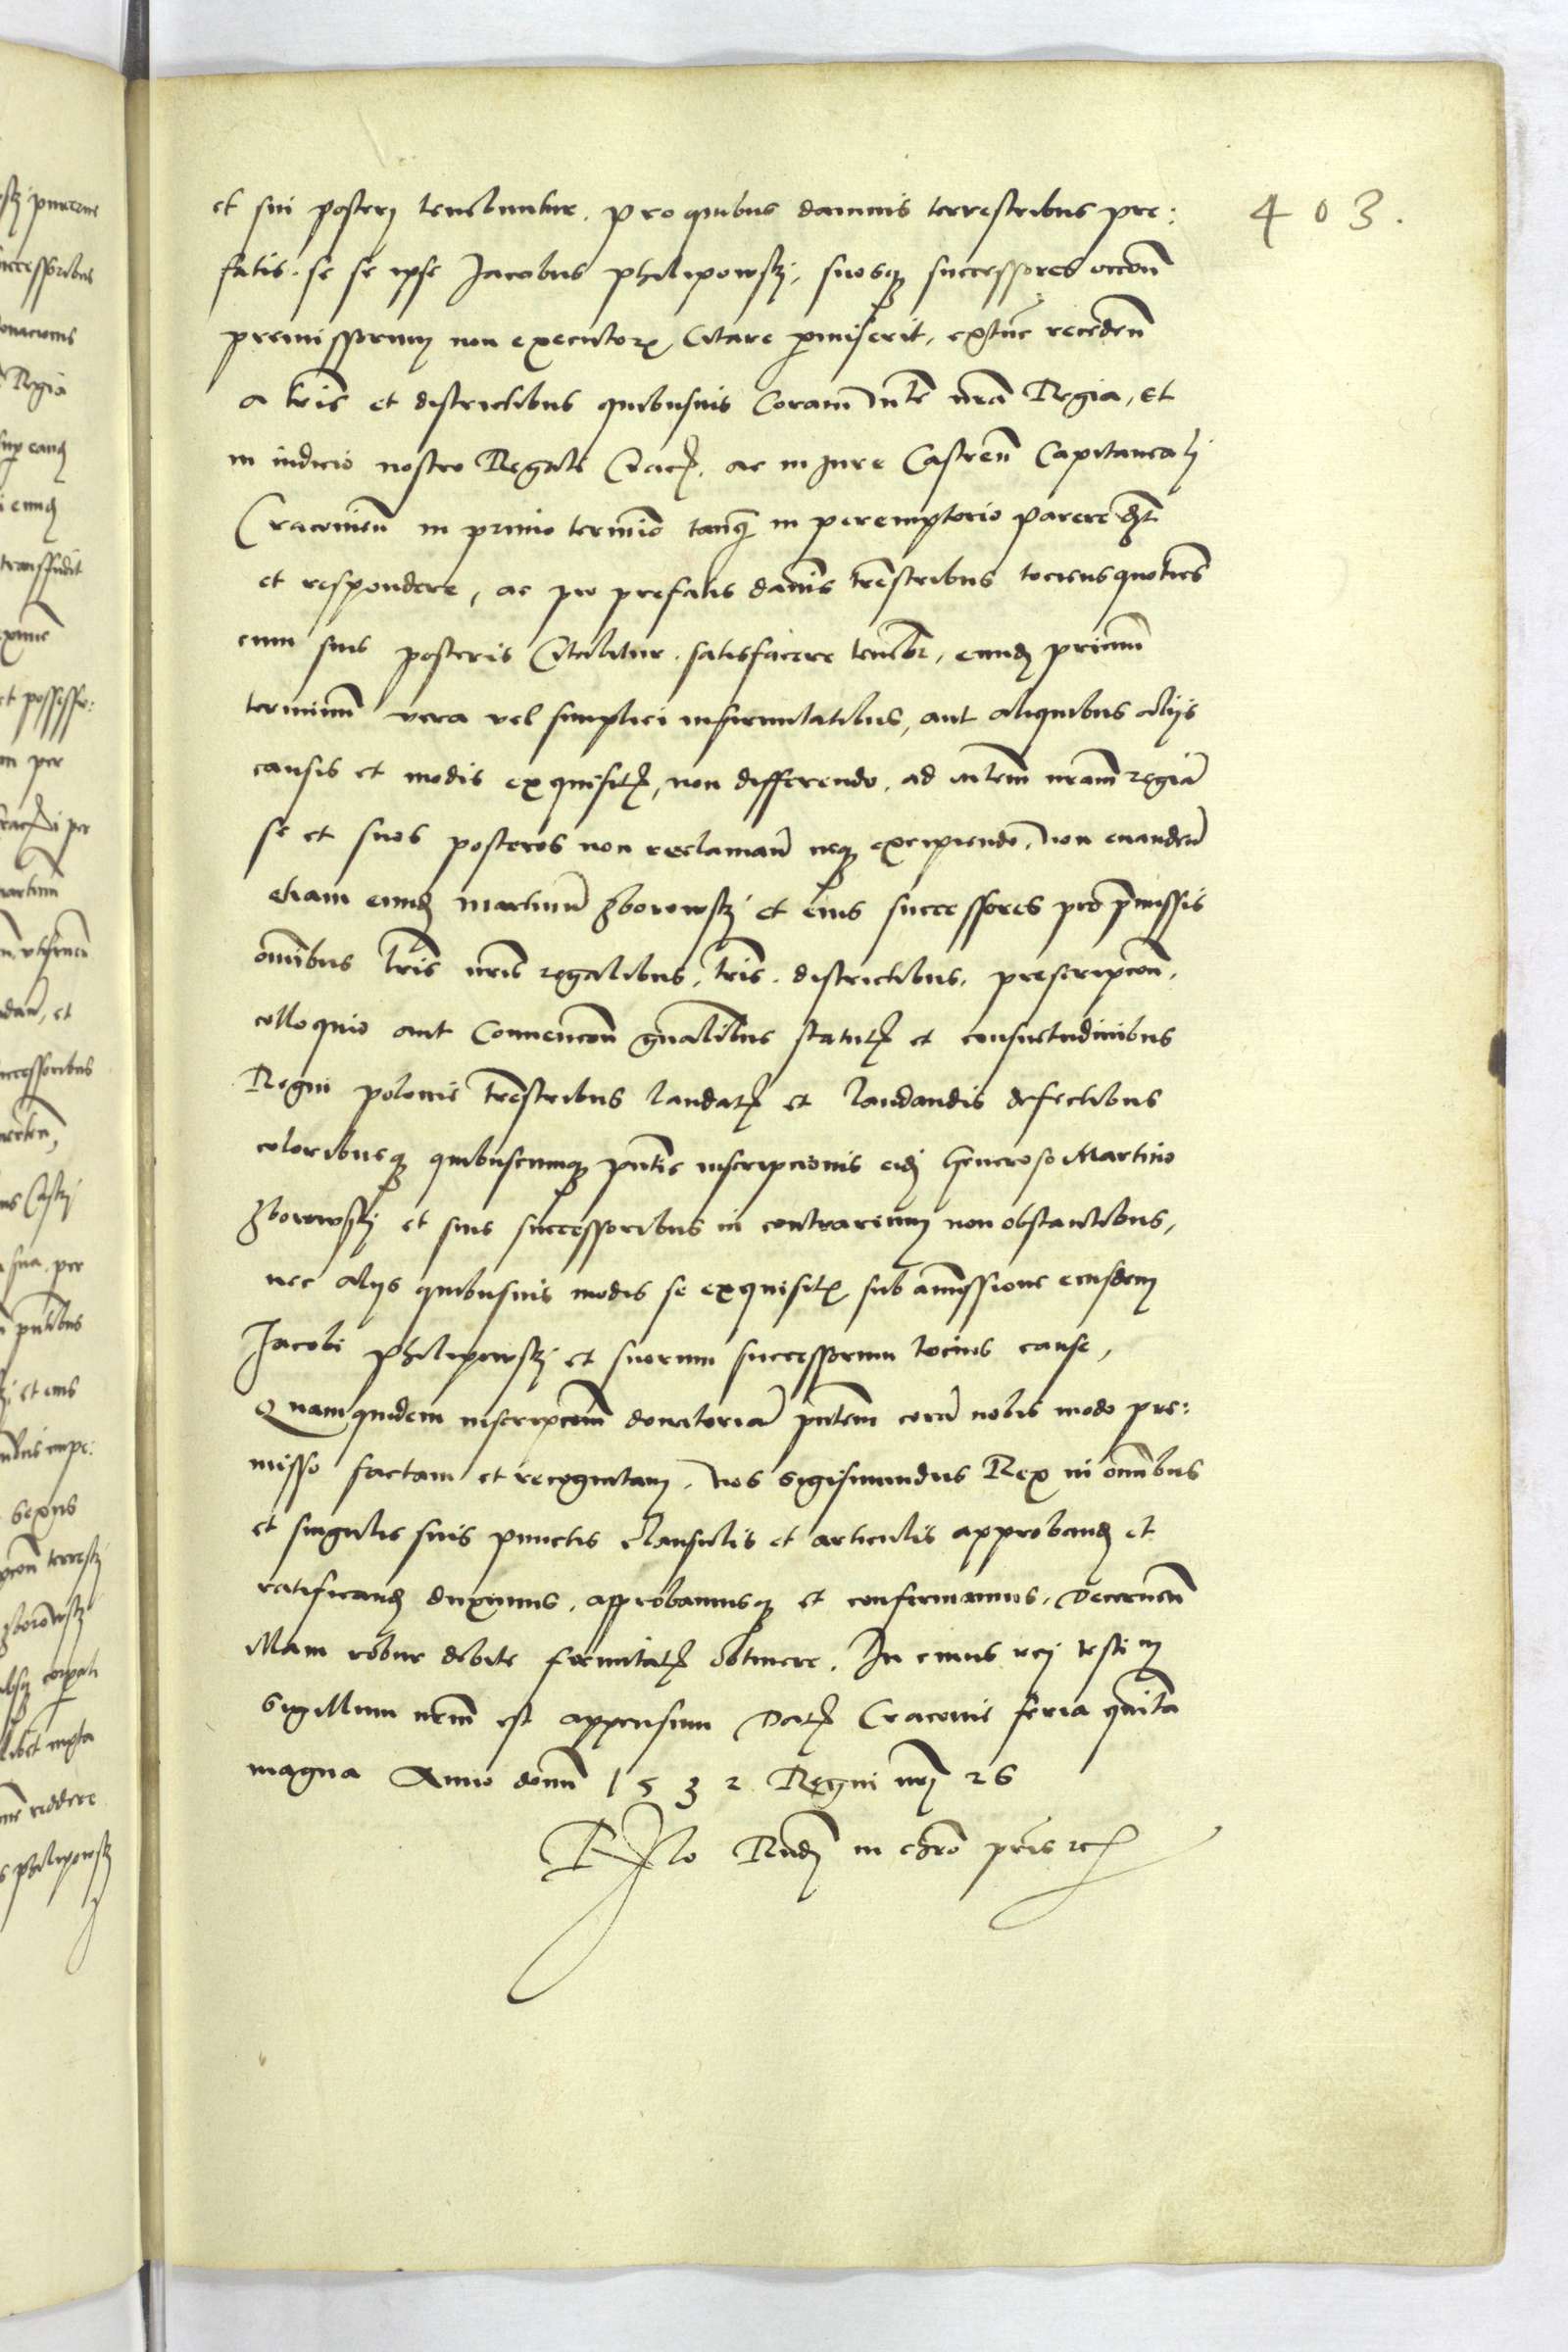 403.
et sui posterj tenebuntur. pro quibus damnis terrestribus pre:
fatis. se se ipse Jacobus philipowskj, suosqꝫ successores occoñ
premissorum non executorꝫ Citare pmiserit, extuc recedeñ
a tris et districtibus quibusuis Coram Mte nra Regia, Et
in iudicio nostro Regali Cracꝫ. ac in Jure Castreñ Capitaneali
Cracovieñ in primo termino tanqꝫ in peremptorio parere
et respondere, ac pro prefatis damis trestribus tociens quoties
cum suis posteris Citabitur. satisfacere tenebr, eundꝫ primum
terminum vera vel simplici infirmitatibus, aut aliquibus alijs
causis et modis exquisitꝫ, non differendo, ad Mtem nram regia
se et suos posteros non reclamañ neqꝫ excipiendo, non euandeñ
etiam eundꝫ martinum Zborowskj et eius successores pro pmissis
omibus lris nris regalibus, tris. districtibus. prescripcoñ.
colloquio aut Convencoñ gnalibus statutꝫ et consuetudinibus
Regni polonie trestribus laudatꝫ et laudandis defectibus
coloribusqꝫ quibuscumqꝫ pntis inscripcionis eidꝫ Generoso Martino
Zborowskj et suis successoribus in contrarium non obstantibus,
nec alijs quibusuis modis se exquisitꝫ sub amissione eiusdem
Jacobi philipowskj et suorum successorum tocius cause,
Quamquidem inscripcom donatoria pntem cora nobis modo pre:
misso factam et recognitam. Nos Sigismundus Rex in omibus
et singulis suis punctis clausulis et articulis approbandꝫ et
ratificandꝫ duximus. approbamusqꝫ et confirmamus. Decerneñ
illam robur debite firmitatꝫ obtinere. In cuius rej testim
Sigillum nrm est appensum Datꝫ Cracovie feria quinta
magna Anno domi 1532 Regni nrj 26
Rlo Rndꝫ in chro pris